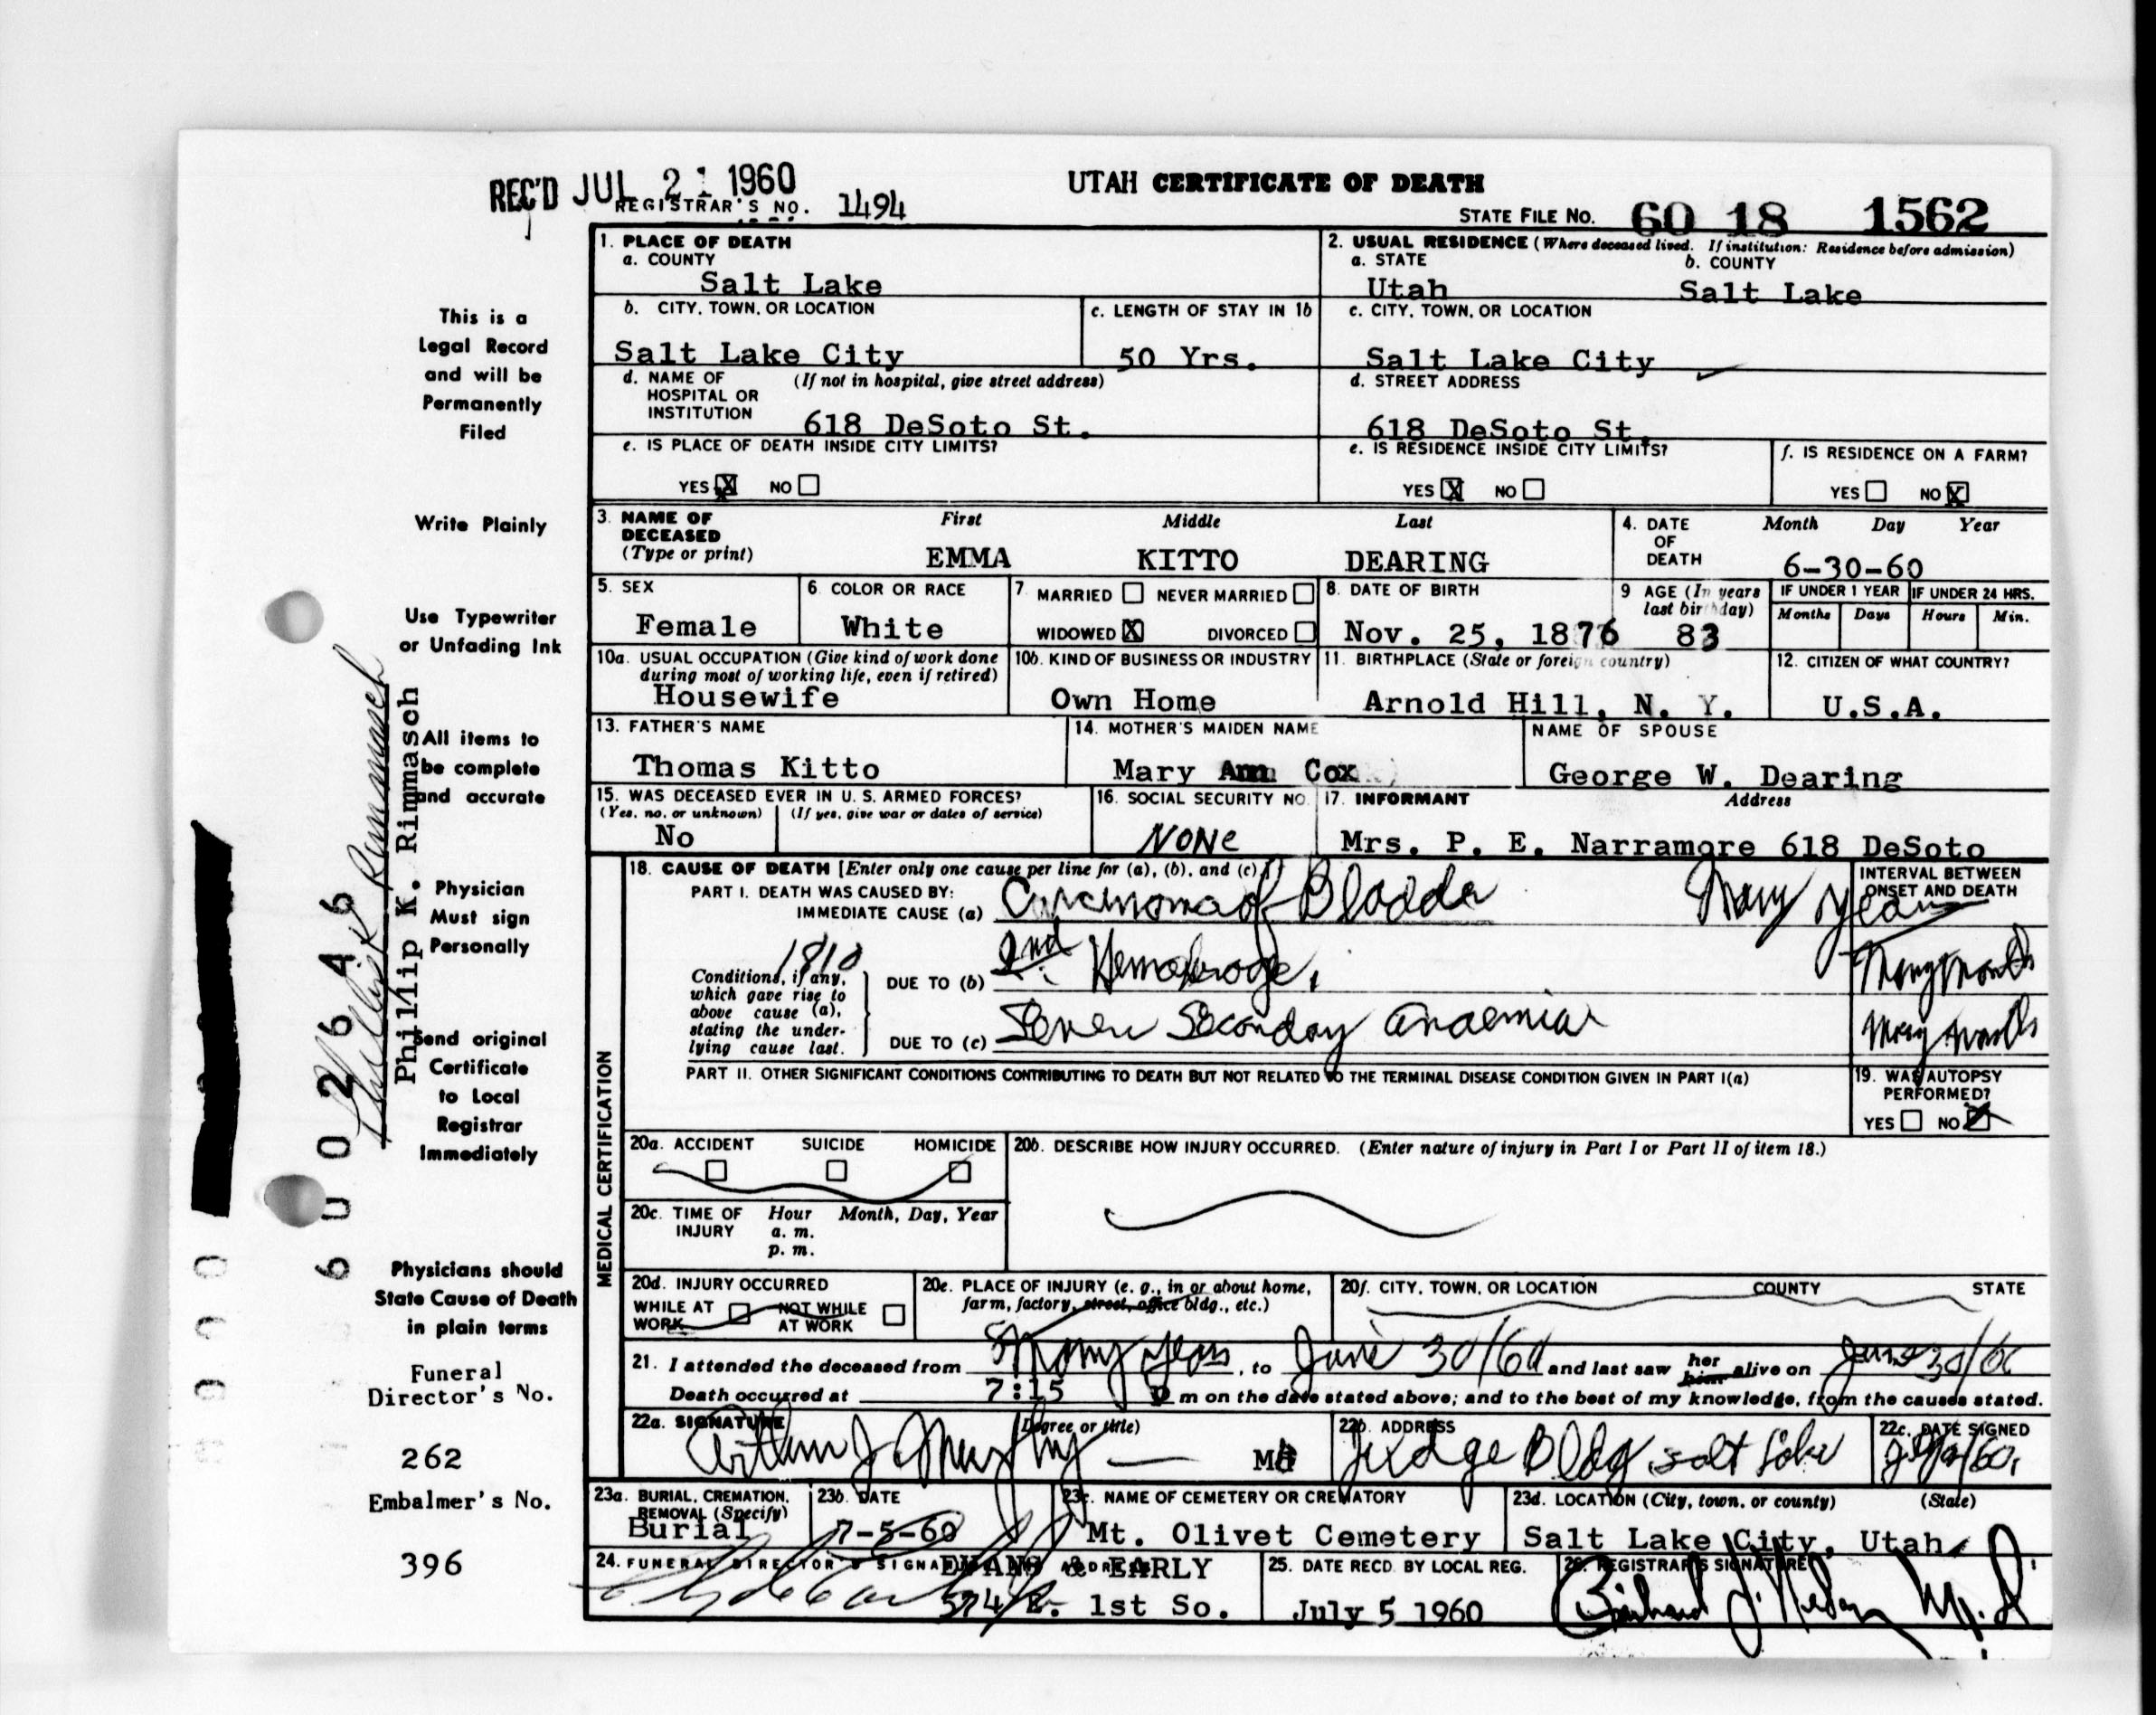 REC'D JUL 21 1960
UTAH CERTIFICATE OF DEATH
REGISTRAR'S NO. 1494
STATE FILE NO. 60 18 1562
1. PLACE OF DEATH
a. COUNTY
Salt Lake
2. USUAL RESIDENCE (Where deceased lived. If institution: Residence before admission)
a. STATE b. COUNTY
Utah Salt Lake
b. CITY, TOWN, OR LOCATION
Salt Lake City
c. LENGTH OF STAY IN 1b
50 Yrs.
c. CITY, TOWN, OR LOCATION
Salt Lake City
d. NAME OF HOSPITAL OR INSTITUTION (If not in hospital, give street address)
618 DeSoto St.
d. STREET ADDRESS
618 DeSoto St.
e. IS PLACE OF DEATH INSIDE CITY LIMITS?
YES X NO
e. IS RESIDENCE INSIDE CITY LIMITS?
YES X NO
f. IS RESIDENCE ON A FARM?
YES NO X
3. NAME OF DECEASED (Type or print)
First Middle Last
EMMA KITTO DEARING
4. DATE OF DEATH
Month Day Year
6-30-60
5. SEX
Female
6 COLOR OR RACE
White
7 MARRIED NEVER MARRIED
WIDOWED X DIVORCED
8. DATE OF BIRTH
Nov. 25, 1876
9 AGE (In years last birthday)
83
IF UNDER 1 YEAR IF UNDER 24 HRS.
Months Days Hours Min.
10a. USUAL OCCUPATION (Give kind of work done during most of working life, even if retired)
Housewife
10b. KIND OF BUSINESS OR INDUSTRY
Own Home
11. BIRTHPLACE (State or foreign country)
Arnold Hill, N. Y.
12. CITIZEN OF WHAT COUNTRY?
U.S.A.
13. FATHER'S NAME
Thomas Kitto
14. MOTHER'S MAIDEN NAME
Mary Ann Cox
NAME OF SPOUSE
George W. Dearing
15. WAS DECEASED EVER IN U. S. ARMED FORCES?
(Yes, no, or unknown) (If yes, give war or dates of service)
No
16. SOCIAL SECURITY NO.
NONE
17. INFORMANT Address
Mrs. P. E. Narramore 618 DeSoto
MEDICAL CERTIFICATION
18. CAUSE OF DEATH [Enter only one cause per line for (a), (b), and (c).]
PART I. DEATH WAS CAUSED BY:
IMMEDIATE CAUSE (a) Carcinoma of Bladder Many years
INTERVAL BETWEEN ONSET AND DEATH
1810
Conditions, if any, which gave rise to above cause (a), stating the underlying cause last.
DUE TO (b) 2nd Hemorrhage, Many months
DUE TO (c) Severe Seconday anaemia Many months
PART II. OTHER SIGNIFICANT CONDITIONS CONTRIBUTING TO DEATH BUT NOT RELATED TO THE TERMINAL DISEASE CONDITION GIVEN IN PART I(a)
19. WAS AUTOPSY PERFORMED?
YES NO X
20a. ACCIDENT SUICIDE HOMICIDE
20b. DESCRIBE HOW INJURY OCCURRED. (Enter nature of injury in Part I or Part II of item 18.)
20c. TIME OF INJURY Hour Month, Day, Year
a. m.
p. m.
20d. INJURY OCCURRED
WHILE AT WORK NOT WHILE AT WORK
20e. PLACE OF INJURY (e. g., in or about home, farm, factory, street, office bldg., etc.)
20f. CITY, TOWN, OR LOCATION COUNTY STATE
21. I attended the deceased from Many years, to June 30/60 and last saw her him alive on June 30/60
Death occurred at 7:15 P m on the date stated above; and to the best of my knowledge, from the causes stated.
22a. SIGNATURE (Degree or title)
Arthur J. Murphy — MD
22b. ADDRESS
Judge Bldg Salt Lake
22c. DATE SIGNED
23a. BURIAL, CREMATION, REMOVAL (Specify)
Burial
23b. DATE
7-5-60
23c. NAME OF CEMETERY OR CREMATORY
Mt. Olivet Cemetery
23d. LOCATION (City, town, or county) (State)
Salt Lake City, Utah
24. FUNERAL DIRECTOR'S SIGNATURE & ADDRESS
EVANS & EARLY
574 E. 1st So.
25. DATE RECD. BY LOCAL REG.
July 5 1960
26. REGISTRAR'S SIGNATURE
This is a
Legal Record
and will be
Permanently
Filed
Write Plainly
Use Typewriter
or Unfading Ink
All items to
be complete
and accurate
Physician
Must sign
Personally
Send original
Certificate
to Local
Registrar
Immediately
Physicians should
State Cause of Death
in plain terms
Funeral
Director's No.
262
Embalmer's No.
396
Phillip K. Rimmasch
Phillip K. Rimmasch
6002646